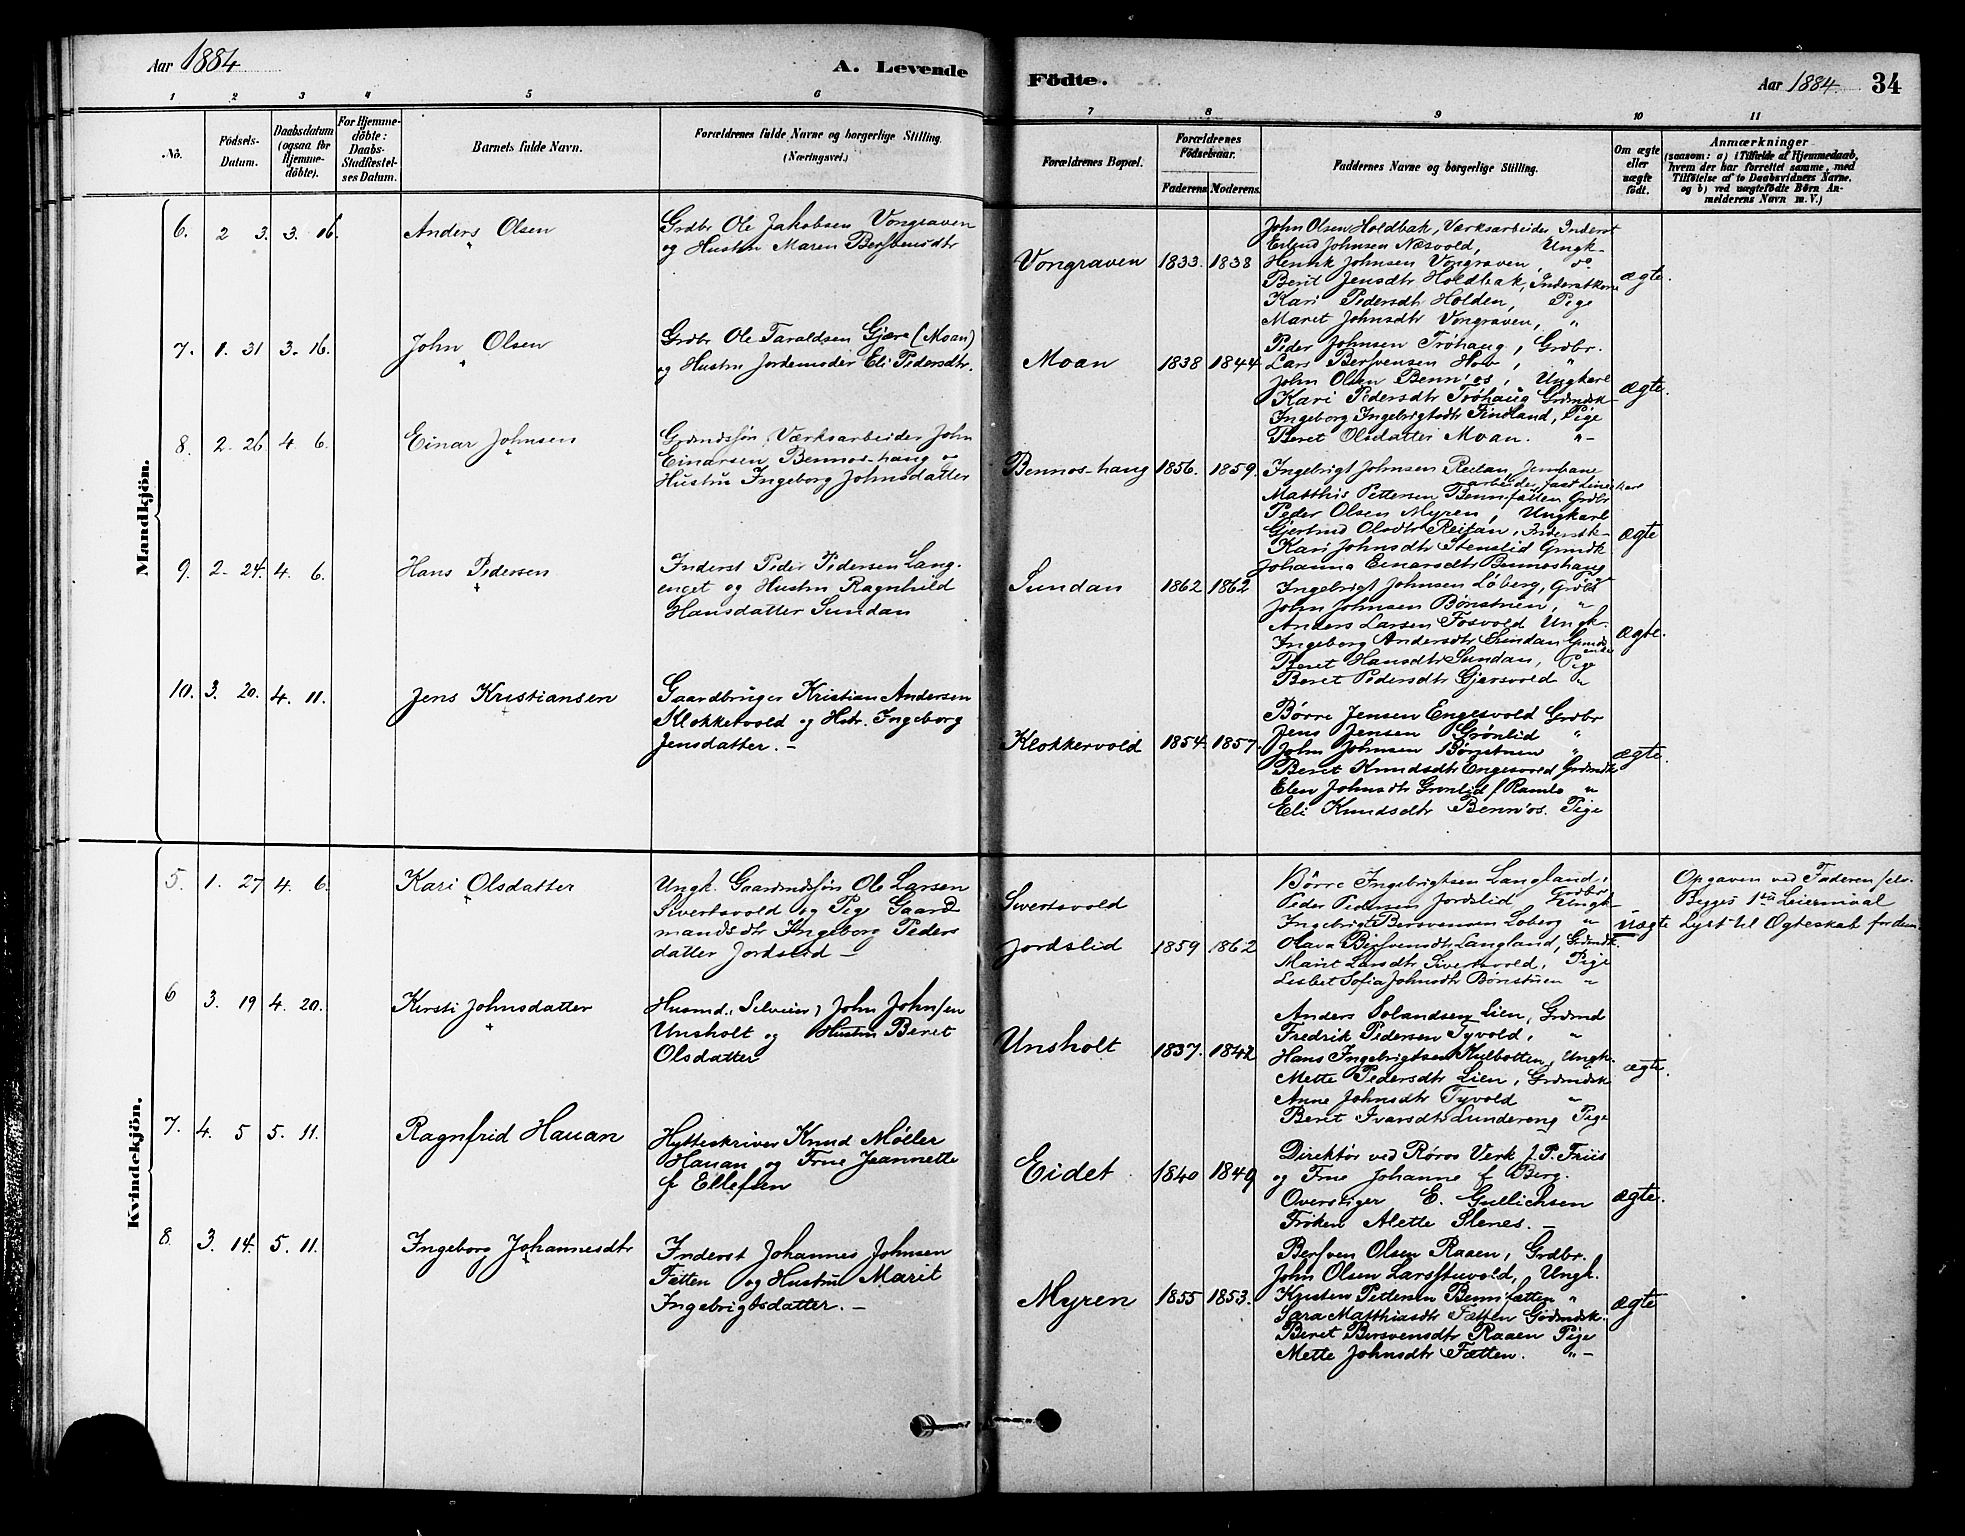 Aar 1884
A. Levende
Födte.
Aar 1884.
34
1 2 3 4 5 6 7 8 9 10 11
No.
Födsels-
Datum.
Daabsdatum
(ogsaa for
Hjemme-
döbte).
For Hjemme-
döbte:
Daabs-
Stadfestel-
ses Datum.
Barnets fulde Navn.
Forældrenes fulde Navne og borgerlige Stilling.
(Næringsvei.)
Forældrenes Bopæl.
Forældrenes
Födselsaar.
Faderens
Moderens.
Faddernes Navne og borgerlige Stilling.
Om ægte
eller
uægte
födt.
Anmærkninger
(saasom: a) i Tilfælde af Hjemmedaab,
hvem der har forrettet samme, med
Tilföielse af to Daabsvidners Navne,
og b) ved uægtefödte Börn An-
melderens Navn m. V.)
Mandkjön.
6. 2 3. 3. 16.
Anders Olsen
Grdbr Ole Jakobsen Vongraven
og Hustru Maren Bersvendsdtr
Vongraven 1833. 1838
John Olsen Holdbak, Værksarbeider Inderst
Erlend Johnsen Næsvold, Ungk-
Henrik Johnsen Vongraven, do
Berit Jensdtr Holdbak, Inderstkone
Kari Pedersdtr Holden, Pige
Maret Johnsdtr Vongraven, "
ægte.
7. 1. 31 3. 16.
John Olsen
Grdbr Ole Taraldsen Gjære (Moan)
og Hustru Jordemoder Eli Pedersdtr.
Moan 1838 1844
Peder Johnsen Trøhaug, Grdbr.
Lars Bersvensen Hov, "
John Olsen Bennøs, Ungkarl
Kari Pedersdtr Trøhaug Grdmdsk-
Ingeborg Ingebrigtsdtr Findland, Pige
Beret Olsdatter Moan. "-
ægte.
8. 2. 26 4. 6.
Einar Johnsen
Grdmdssøn, Værksarbeider John
Einarsen Bennos-haug og
Hustru Ingeborg Johnsdatter
Bennos-haug 1856. 1859.
Ingebrigt Johnsen Reitan, Jernbane
arbeider,
Matthis Pettersen Bennsfætten Grdbr
Peder Olsen Myren, Ungkarl
Gjertrud Olsdtr Reitan, Inderstk-
Kari Johnsdtr Stenslid Grmdk.
Johanna Einarsdtr Bennoshaug
Pige
ægte
9. 2. 24. 4. 6.
Hans Pedersen
Inderst Peder Pedersen Lang-
enget og Hustru Ragnhild
Hansdatter Sundan
Sundan 1862 1862
Ingebrigt Johnsen Løberg, Grdbr
John Johnsen Bønstuen, "
Anders Larsen Fosvold Ungk.
Ingeborg Andersdtr Sundan
Beret Hansdtr Sundan, Pige
Beret Pedersdtr Gjersvold "
ægte.
10. 3. 20. 4. 11.
Jens Kristiansen
Gaardbruger Kristian Andersen
Klokkervold og Hstr. Ingeborg
Jensdatter. -
Klokkervold 1854. 1857.
Børre Jensen Engesvold Grdbr
Jens Jensen Grønlid "
John Johnsen Bønstuen "
Beret Knudsdtr Engesvold, Grdmdk
Elen Johnsdtr Grønlid f Ramlo "
Eli Knudsdtr Bennøs. Pige
ægte.
Kvindekjön.
5. 1. 27 4. 6.
Kari Olsdatter
Ungk. Gaardmdssøn Ole Larsen
Sivertsvold og Pige Gaard
mandsdtr Ingeborg Peders
datter Jordslid -
Sivertsvold
Jordslid 1859 1862
Børre Ingebrigtsen Langland,
Grdbr
Peder Pedersen Jordslid Ungk
Ingebrigt Bersvensen Løberg "
Olava Bersvensdtr Langland, Grdmdk.
Marit Larsdtr Sivertsvold, Pige
Lisbet Sofia Johnsdtr Bønstuen "
uægte
Opgaven ved Faderen selv.
Begges 1ste Leiermaal
Lyst til Ægteskab for dem
6 3. 19 4. 20.
Kirsti Johnsdatter
Husmd. Selveier, John Johnsen
Unsholt og Hustru Beret
Olsdatter
Unsholt 1837. 1842
Anders Solandsen Lien, Grdmd
Fredrik Pedersen Tyvold, "
Hans Ingebrigtsen Kulbotten, Ungk.
Mette Pedersdtr Lien, Grdmdsk
Anne Johnsdtr Tyvold "
Berit Ivarsdtr Lundereng Pige
ægte.
7. 4. 5 5. 11.
Ragnfrid Hauan
Hytteskriver Knud Möller
Hauan og Frue Jeannette
f Ellefsen
Eidet 1840 1849
Direktør ved Røros Verk J. P. Friis
og Frue Johanne f Berg.
Overstiger E. Gullichsen
Frøken Alette Stenes. -
ægte.
8. 3. 14. 5. 11.
Ingeborg Johannesdtr
Inderst Johannes Johnsen
Fætten og Hustru Marit
Ingebrigtsdatter. -
Myren 1855 1853.
Bersven Olsen Raaen, Grdbr.
John Olsen Larsstuvold, Ungk.
Kristen Pettersen Bennsfætten "
Sara Matthiasdtr Fætten Grdmdsk.
Beret Bersvensdtr Raaen Pige
Mette Johnsdtr Fætten. "-
ægte